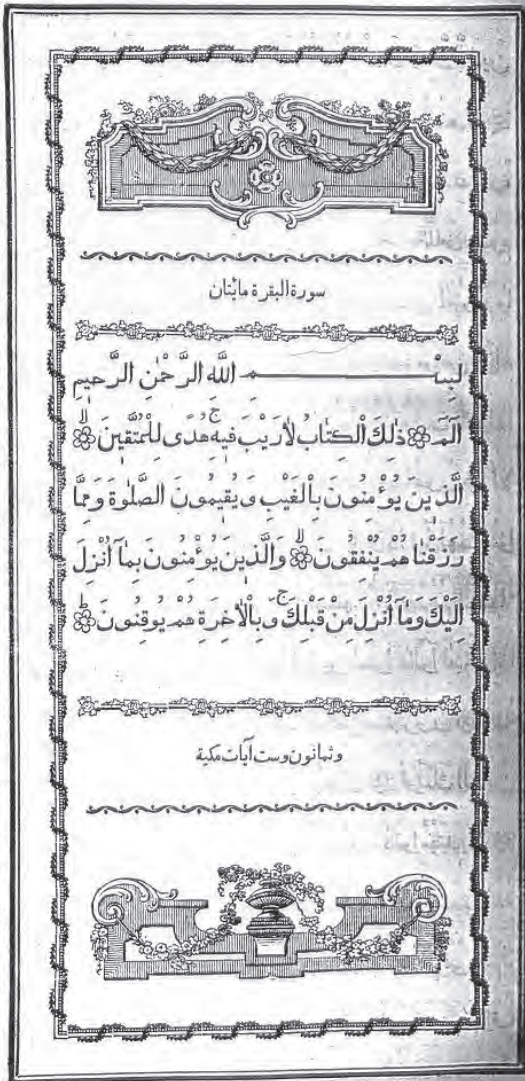 سورة البقرة مائتان
بسم الله الرَّحْمٰنِ الرَّحيمِ
الٓمٓ ۞ ذٰلِكَ الْكِتابُ لٰا رَيْبَ فيهِ ج هُدًى لِلْمُتَّقينَ لا ۞
الَّذينَ يُؤْمِنُونَ بِالْغَيْبِ وَيُقيمُونَ الصَّلٰوةَ وَمِمَّا
رَزَقْنٰا هُمْ يُنْفِقُونَ لا ۞ وَالَّذينَ يُؤْمِنُونَ بِمٰٓا اُنْزِلَ
اِلَيْكَ وَمٰٓا اُنْزِلَ مِنْ قَبْلِكَ ج وَبِالْاٰخِرَةِ هُمْ يُوقِنُونَ ط ۞
وثمانون وست آيات مكية